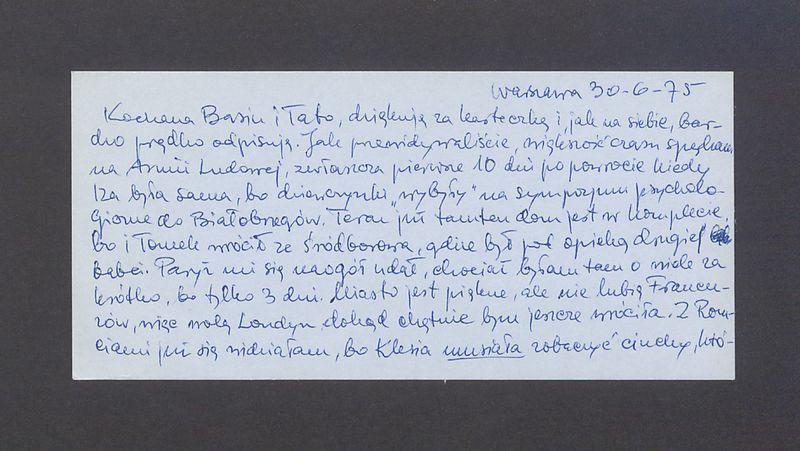 Warszawa 30-6-75
Kochana Basiu i Tato, dziękuję za karteczkę i, jak na siebie, bar-
dzo prędko odpisuję. Jak przewidywaliście, większość czasu spędzam
na Armii Ludowej, zwłaszcza pierwsze 10 dni po powrocie kiedy
Iza była sama, bo dziewczynki „wybyły" na sympozjum psycholo-
giczne do Białobrzegów. Teraz już tamten dom jest w komplecie,
bo i Tomek wrócił ze Śródborowa, gdzie był pod opieką drugiej
babci. Paryż mi się naogół udał, chociaż byłam tam o wiele za
krótko, bo tylko 3 dni. Miasto jest piękne, ale nie lubię Francu-
zów, więc wolę Londyn dokąd chętnie bym jeszcze wróciła. Z Rom-
ciami już się widziałam, bo Klesia musiała zobaczyć ciuchy, któ-